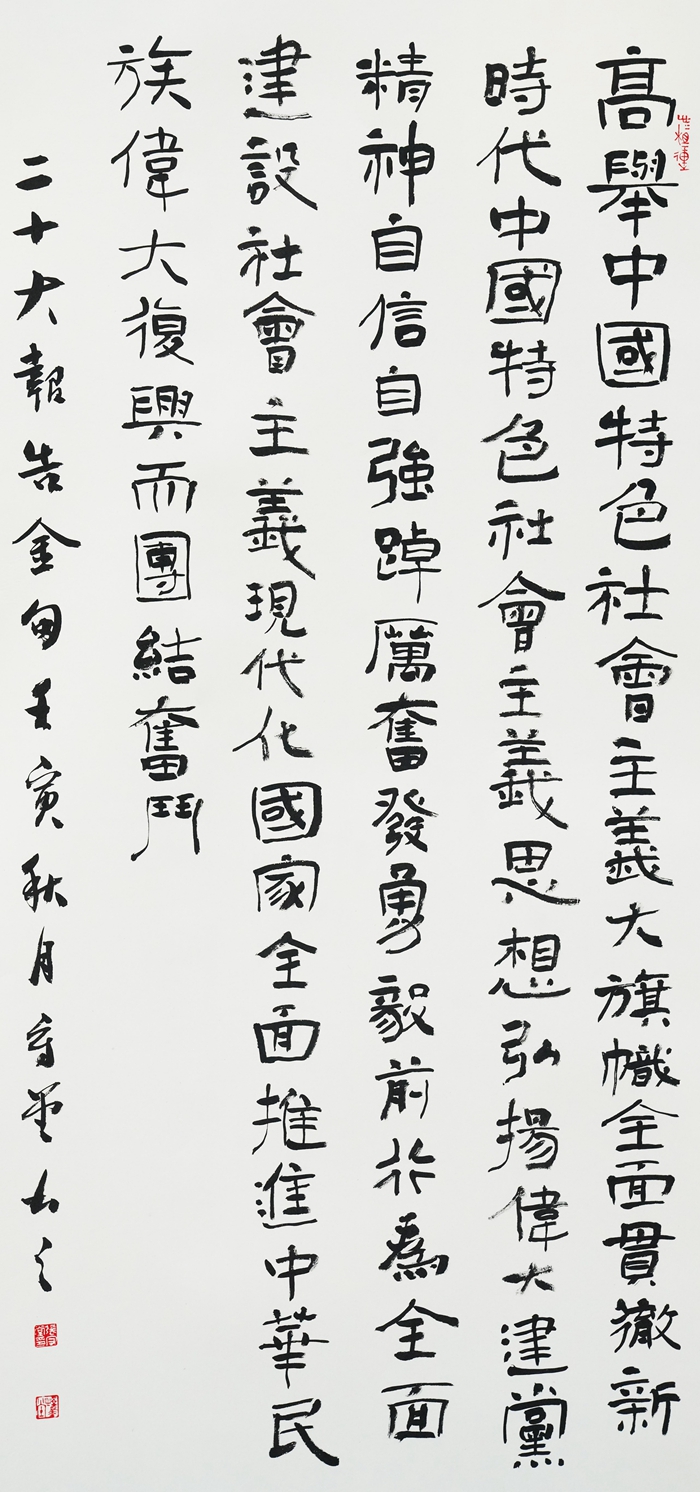 高舉中國特色社會主義大旗幟全面貫徹新
時代中國特色社會主義思想弘揚偉大建黨
精神自信自強踔厲奮發勇毅前行為全面
建設社會主義現代化國家全面推進中華民
族偉大復興而團結奮鬥
二十大報告金句壬寅秋月守墨書之